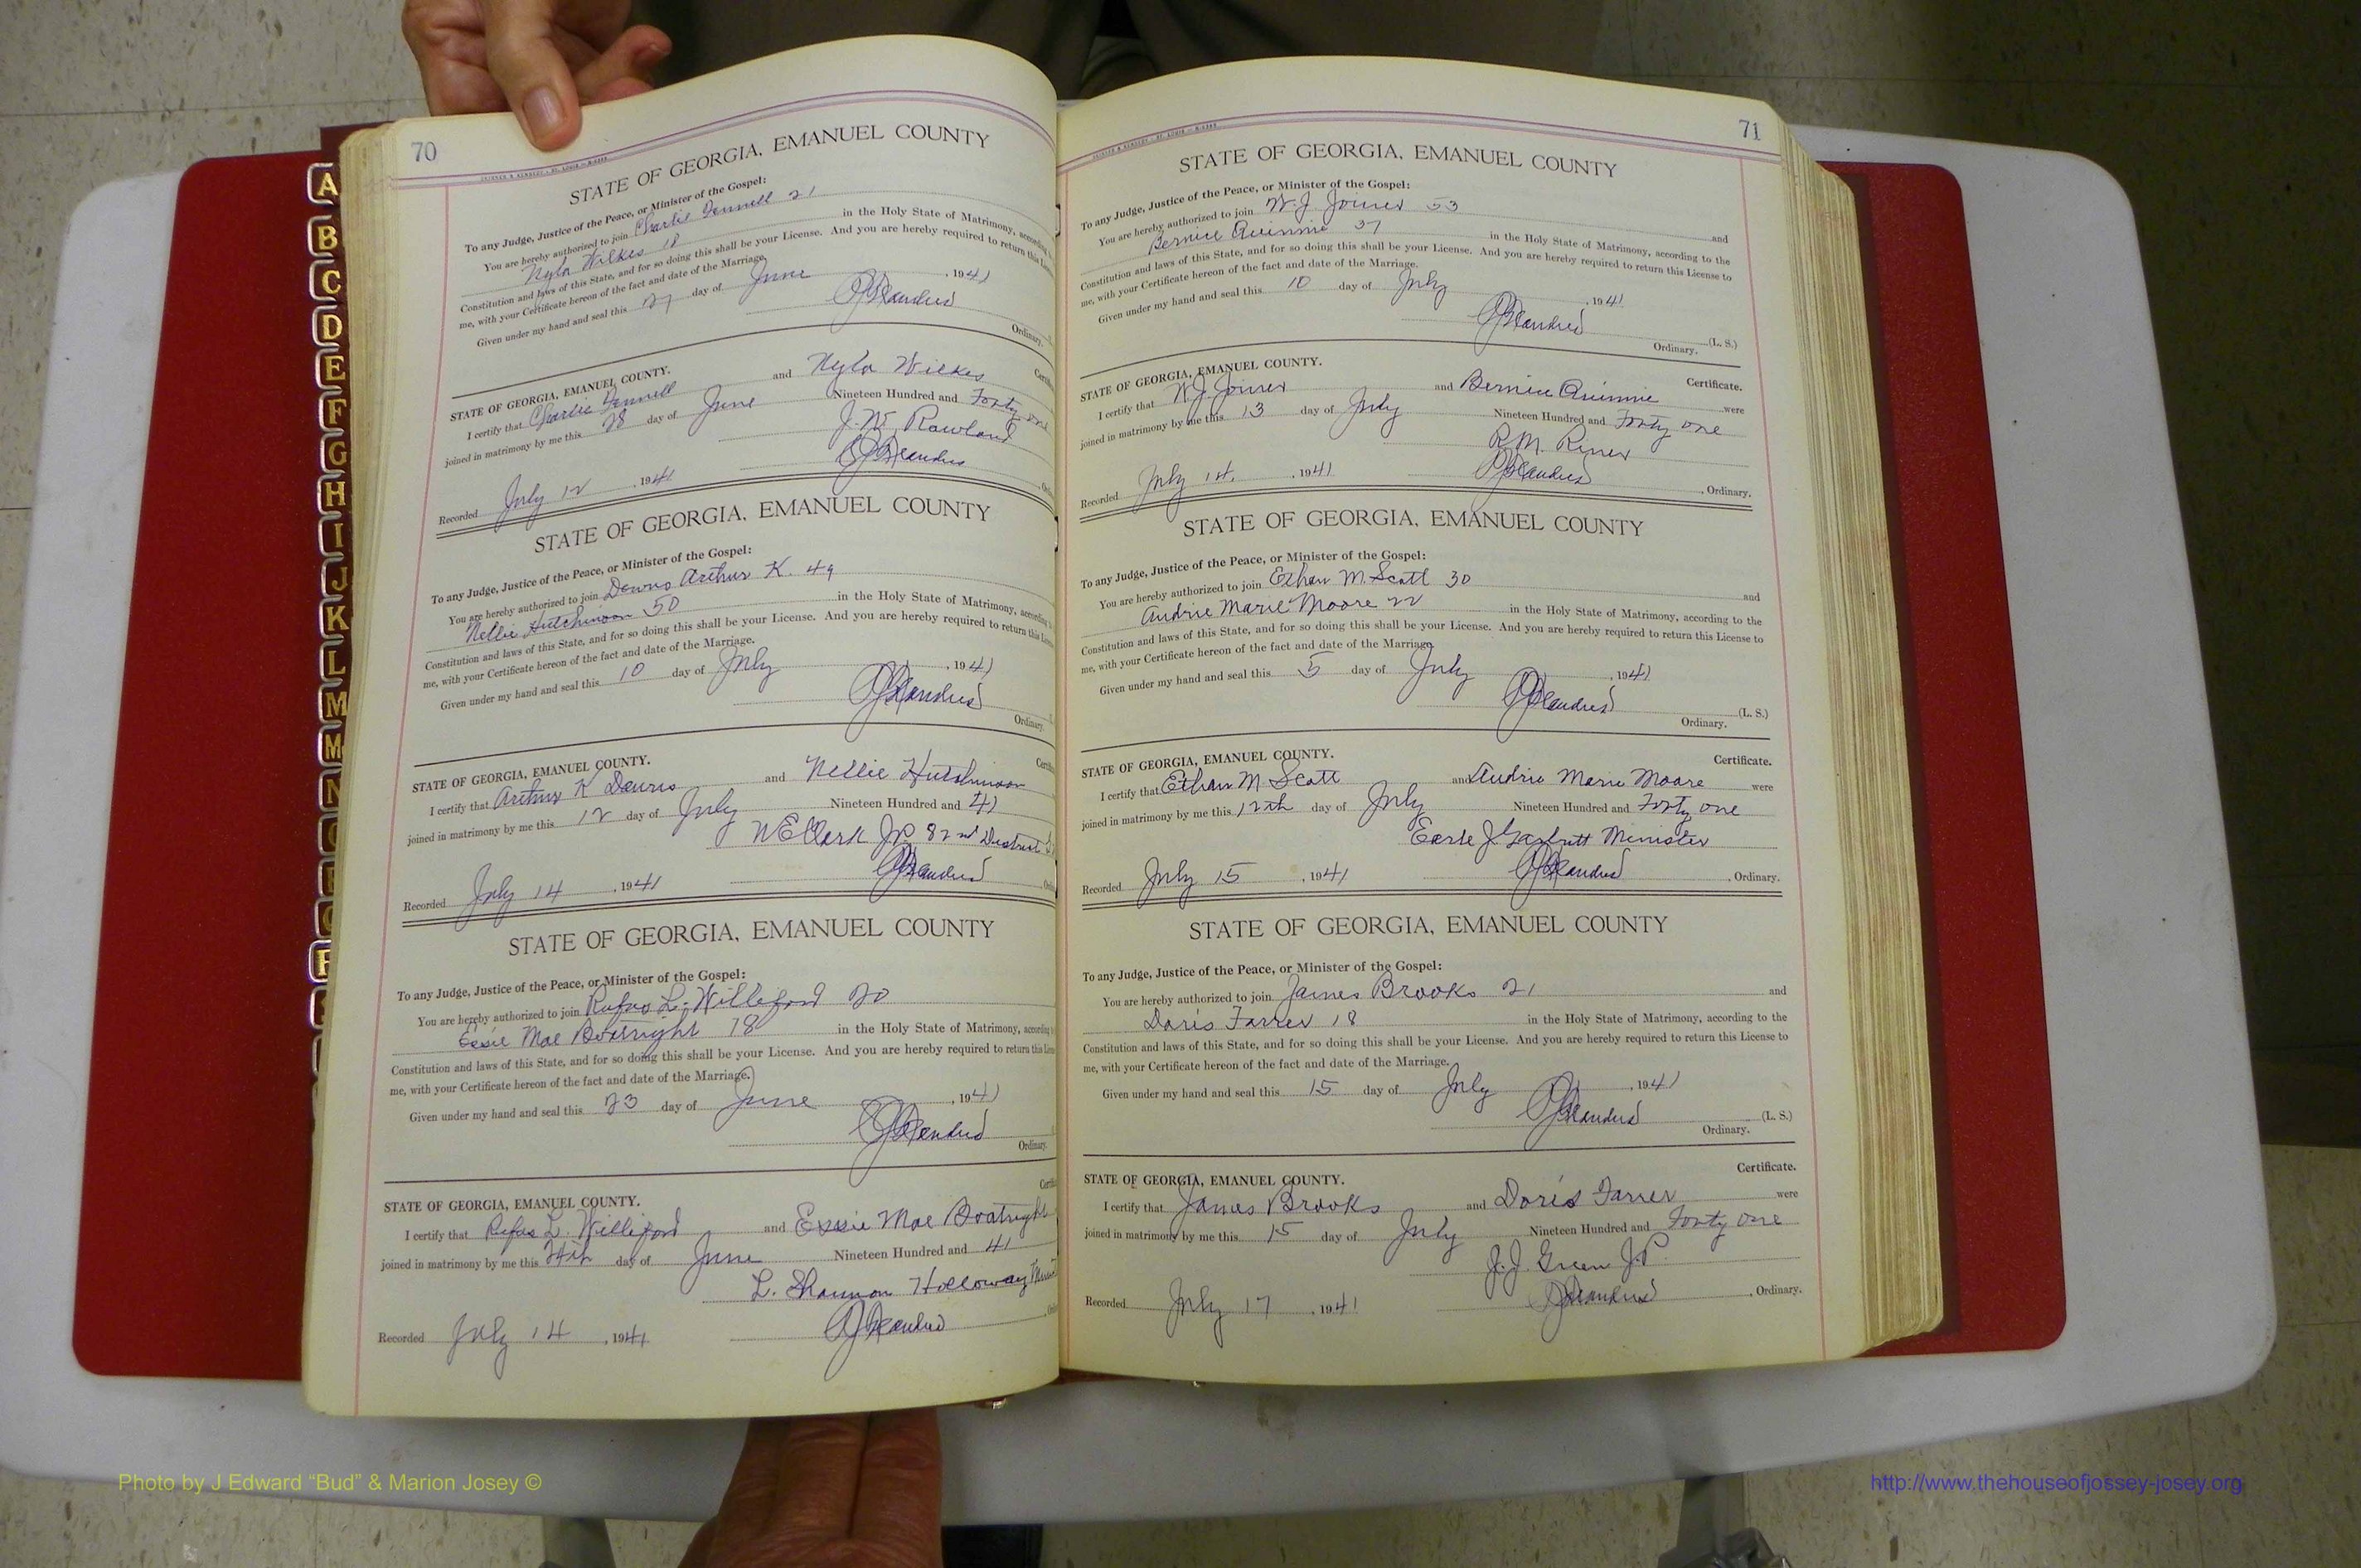 70
STATE OF GEORGIA, EMANUEL COUNTY
To any Judge, Justice of the Peace, or Minister of the Gospel:
You are hereby authorized to join Charlie Fennell 21
Nyla Wilkes 18 in the Holy State of Matrimony, according
Constitution and laws of this State, and for so doing this shall be your License. And you are hereby required to return this
me, with your Certificate hereon of the fact and date of the Marriage.
Given under my hand and seal this 27 day of June, 1941
Ordinary.
STATE OF GEORGIA, EMANUEL COUNTY.
I certify that Charlie Fennell and Nyla Wilkes
joined in matrimony by me this 28 day of June Nineteen Hundred and Forty one
J. W. Rowland
Recorded July 12, 1941
STATE OF GEORGIA, EMANUEL COUNTY
To any Judge, Justice of the Peace, or Minister of the Gospel:
You are hereby authorized to join Arthur K. 49
Nellie Hutchinson 50 in the Holy State of Matrimony, according
Constitution and laws of this State, and for so doing this shall be your License. And you are hereby required to return this
me, with your Certificate hereon of the fact and date of the Marriage.
Given under my hand and seal this 10 day of July, 1941
Ordinary.
STATE OF GEORGIA, EMANUEL COUNTY.
I certify that Arthur K and Nellie Hutchinson
joined in matrimony by me this 12 day of July Nineteen Hundred and 41
W E Clark JP 82nd District
Recorded July 14, 1941
STATE OF GEORGIA, EMANUEL COUNTY
To any Judge, Justice of the Peace, or Minister of the Gospel:
You are hereby authorized to join Rufus L. Williford 20
Essie Mae Boatright 18 in the Holy State of Matrimony, according
Constitution and laws of this State, and for so doing this shall be your License. And you are hereby required to return this
me, with your Certificate hereon of the fact and date of the Marriage.
Given under my hand and seal this 23 day of June, 1941
Ordinary.
STATE OF GEORGIA, EMANUEL COUNTY.
I certify that Rufus L. Williford and Essie Mae Boatright
joined in matrimony by me this 24th day of June Nineteen Hundred and 41
L. Shannon Holloway
Recorded July 14, 1941
71
STATE OF GEORGIA, EMANUEL COUNTY
To any Judge, Justice of the Peace, or Minister of the Gospel:
You are hereby authorized to join W. J. Joiner 53 and
Bernice Quinnie 37 in the Holy State of Matrimony, according to the
Constitution and laws of this State, and for so doing this shall be your License. And you are hereby required to return this License to
me, with your Certificate hereon of the fact and date of the Marriage.
Given under my hand and seal this 10 day of July, 1941
(L. S.)
Ordinary.
STATE OF GEORGIA, EMANUEL COUNTY. Certificate.
I certify that W. J. Joiner and Bernice Quinnie were
joined in matrimony by me this 13 day of July Nineteen Hundred and Forty one
R. M. Riner
Recorded July 14, 1941 , Ordinary.
STATE OF GEORGIA, EMANUEL COUNTY
To any Judge, Justice of the Peace, or Minister of the Gospel:
You are hereby authorized to join Ethan M. Scott 30 and
Audrie Marie Moore 22 in the Holy State of Matrimony, according to the
Constitution and laws of this State, and for so doing this shall be your License. And you are hereby required to return this License to
me, with your Certificate hereon of the fact and date of the Marriage.
Given under my hand and seal this 5 day of July, 1941
(L. S.)
Ordinary.
STATE OF GEORGIA, EMANUEL COUNTY. Certificate.
I certify that Ethan M Scott and Audrie Marie Moore were
joined in matrimony by me this 12th day of July Nineteen Hundred and Forty one
Earle J. Garbutt Minister
Recorded July 15, 1941 , Ordinary.
STATE OF GEORGIA, EMANUEL COUNTY
To any Judge, Justice of the Peace, or Minister of the Gospel:
You are hereby authorized to join James Brooks 21 and
Doris Farrer 18 in the Holy State of Matrimony, according to the
Constitution and laws of this State, and for so doing this shall be your License. And you are hereby required to return this License to
me, with your Certificate hereon of the fact and date of the Marriage.
Given under my hand and seal this 15 day of July, 1941
(L. S.)
Ordinary.
STATE OF GEORGIA, EMANUEL COUNTY. Certificate.
I certify that James Brooks and Doris Farrer were
joined in matrimony by me this 15 day of July Nineteen Hundred and Forty one
J. J. Green J.P.
Recorded July 17, 1941 , Ordinary.
A
B
C
D
E
F
G
H
I
J
K
L
M
M
N
Photo by J Edward “Bud” & Marion Josey ©
http://www.thehouseofjossey-josey.org